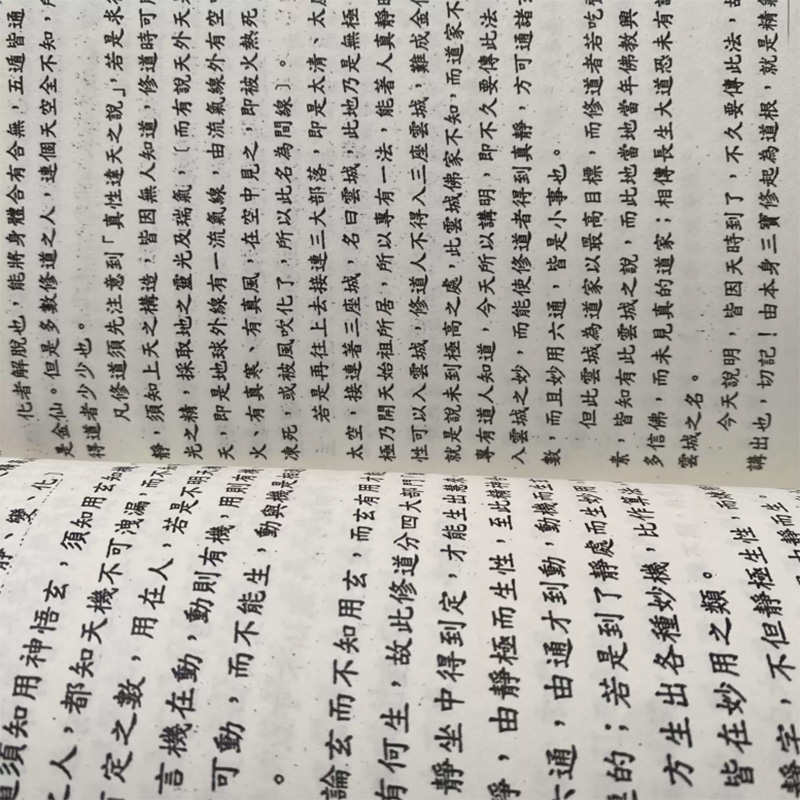 靜、變、化
道須知用神悟玄,須知用玄如
之人,都知天機不可洩漏,而不
有定之數,用在人,若是不明天
言機在動,動則有機,用則有
可動,而不能生,動與機是
。
論玄而不知用玄,而玄有用才
有何生,故此修道分四大部門
靜坐中得到定,才能生出慧
靜,由靜極而生性,至此精神
六通,由通才到動,動機而生
的;若是到了靜處而生妙用
方生出各種妙機,比作
皆在妙用之類。
靜字,不但靜極生性,而
由靜而生
化者解脫也,能將身體合有合無,五遁皆通
是金仙。但是多數修道之人,連個天空全不知,
得道者少少也。
凡修道須先注意到「真性達天之說」,若是求
靜,須知上天之構造,皆因無人知道,修道時可
光之精,採取地之靈光及瑞氣,〔而有說天外天
天,即是地球外線有一流氣線,由流氣線外有空
火、有真寒、有真風,在空中見之,即被火熱死
凍死,或被風吹化了,所以此名為間線〕。
若是再往上去接連三大部落,即是太清、太
太空,接連著三座城,名曰雲城,此地乃是無極
極乃開天始祖所居,所以專有一法,能著人真靜
性可以入雲城,修道人不得入三座雲城,難成金
就是說未到極高之處,此雲城佛家不知,而道家不
專有道人知道,今天所以講明,即不久要傳此法
入雲城之妙,而能使修道者得到真靜,方可通諸
數,而且妙用六通,皆是小事也。
但此雲城為道家以最高目標,而修道者若吃
素,皆知有此雲城之說,而此地當地當年佛教興
多信佛,而未見真的道家;相傳長生大道恐未有
雲城之名。
今天說明,皆因天時到了,不久要傳此法,
講出也,切記!由本身三寶修起為道根,就是精